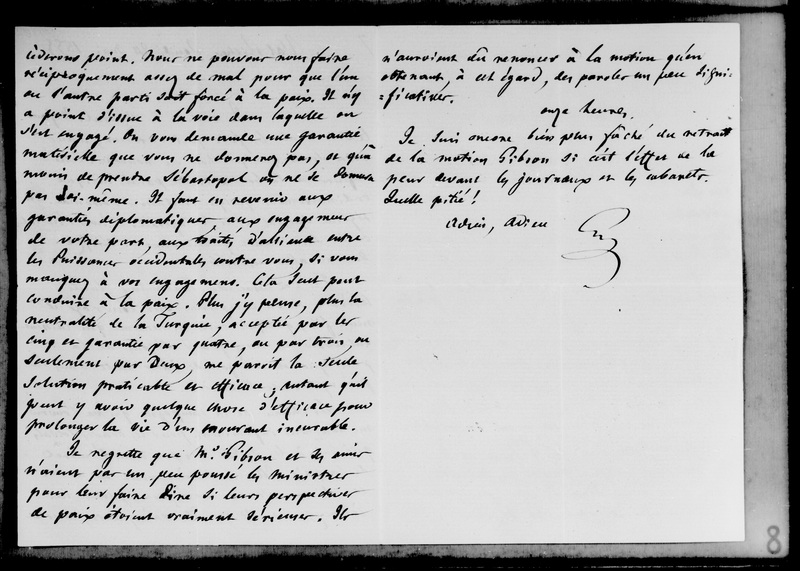 cèderons point. Nous ne pouvons nous faire
réciproquement assez de mal pour que l'un
ou l'autre parti soit forcé à la paix. Il n'y
a point d'issue à la voie dans laquelle on
s'est engagé. On vous demande une garantie
matérielle que vous ne donnerez pas, et qu'à
moins de prendre Sébastopol on ne se donnera
pas soi-même. Il faut en revenir aux
garanties diplomatiques, aux engagemens
de votre part, aux traités d'alliance entre
les Puissances occidentales contre vous, si vous
manquez à vos engagemens. Cela seul peut
conduire à la paix. Plus j'y pense, plus la
neutralité de la Turquie, acceptée par les
cinq et garantie par quatre, ou par trois, ou
seulement par Deux, me paroit la seule
solution praticable et efficace, autant qu'il
peut y avoir quelque chose d'efficace pour
prolonger la vie d'un mourant incurable.
Je regrette que Mr. Gibson et ses amis
n'aient pas un peu poussé les ministres
pour leur faire dire si leurs perspectives
de paix étoient vraiment sérieuses. Ils
n'auroient dû renoncer à la motion qu'en
obtenant, à cet égard, des paroles un peu signi-
=ficatives.
onze heures.
Je suis encore bien plus fâché du retrait
de la motion Gibson si c'est l'effet de la
peur devant les journaux et les cabarets.
Quelle pitié!
Adieu, Adieu
8